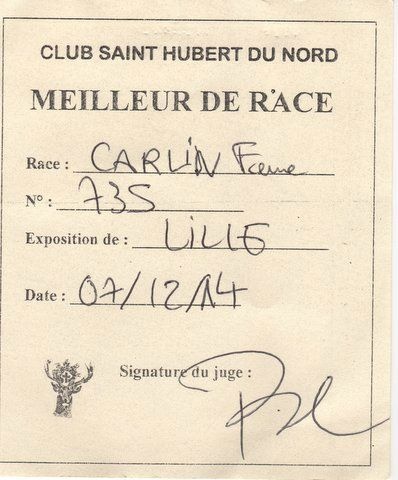 CLUB SAINT HUBERT DU NORD
MEILLEUR DE RACE
Race : CARLIN
N° : 735
Exposition de : LILLE
Date : 07/12/14
Signature du juge :